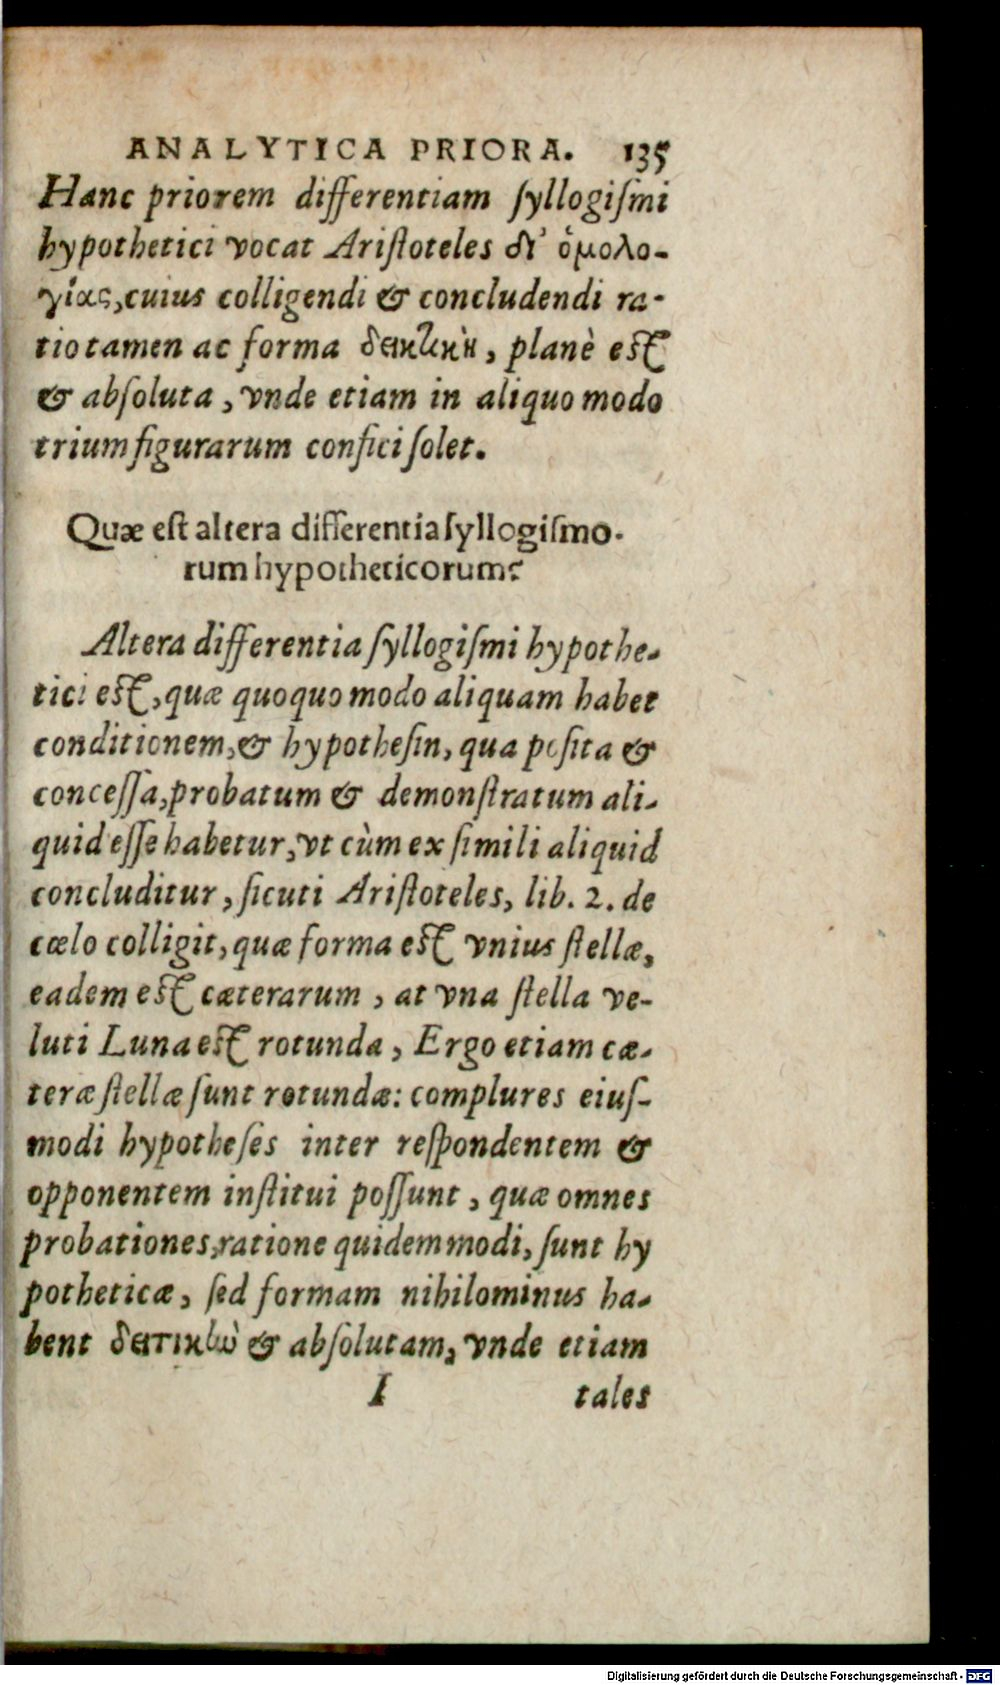 ANALYTICA PRIORA. 135
Hanc priorem differentiam syllogismi
hypothetici vocat Aristoteles δι' ὁμολο-
γίας, cuius colligendi & concludendi ra-
tio tamen ac forma δεικτικὴ, planè est
& absoluta, vnde etiam in aliquo modo
trium figurarum confici solet.
Quæ est altera differentia syllogismo-
rum hypotheticorum?
Altera differentia syllogismi hypothe-
tici est, quæ quoquo modo aliquam habet
conditionem, & hypothesin, qua posita &
concessa, probatum & demonstratum ali-
quid esse habetur, vt cùm ex simili aliquid
concluditur, sicuti Aristoteles, lib. 2. de
cœlo colligit, quæ forma est vnius stellæ,
eadem est cæterarum, at vna stella ve-
luti Luna est rotunda, Ergo etiam cæ-
teræ stellæ sunt rotundæ: complures eius-
modi hypotheses inter respondentem &
opponentem institui possunt, quæ omnes
probationes, ratione quidem modi, sunt hy
potheticæ, sed formam nihilominus ha-
bent & absolutam, vnde etiam
I tales
Digitalisierung gefördert durch die Deutsche Forschungsgemeinschaft - DFG